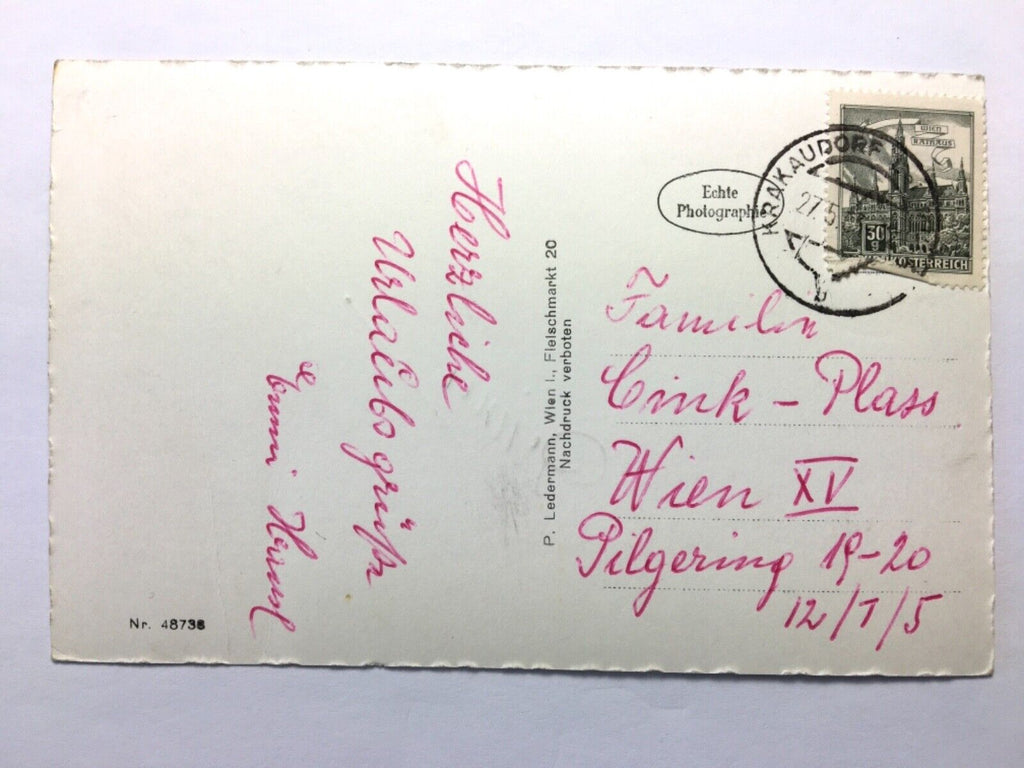 Herzliche
Urlaubsgrüße
Emmi
Echte
Photographie
KRAKAUDORF
27.5
b
WIEN
RATHAUS
30
g
REPUBLIK ÖSTERREICH
P. Ledermann, Wien I., Fleischmarkt 20
Nachdruck verboten
Familie
Cink - Plass
Wien XV
Pilgering 19-20
12/1/5
Nr. 48738